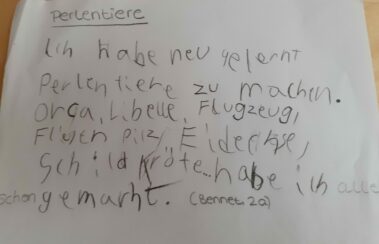 Perlentiere
Ich habe neu gelernt
Perlentiere zu machen.
Orca, Libelle, Flugzeug,
Fligen Pilz, Eidechse,
Schildkröte... habe ich alle
schon gemacht. (Bennet, 2a)